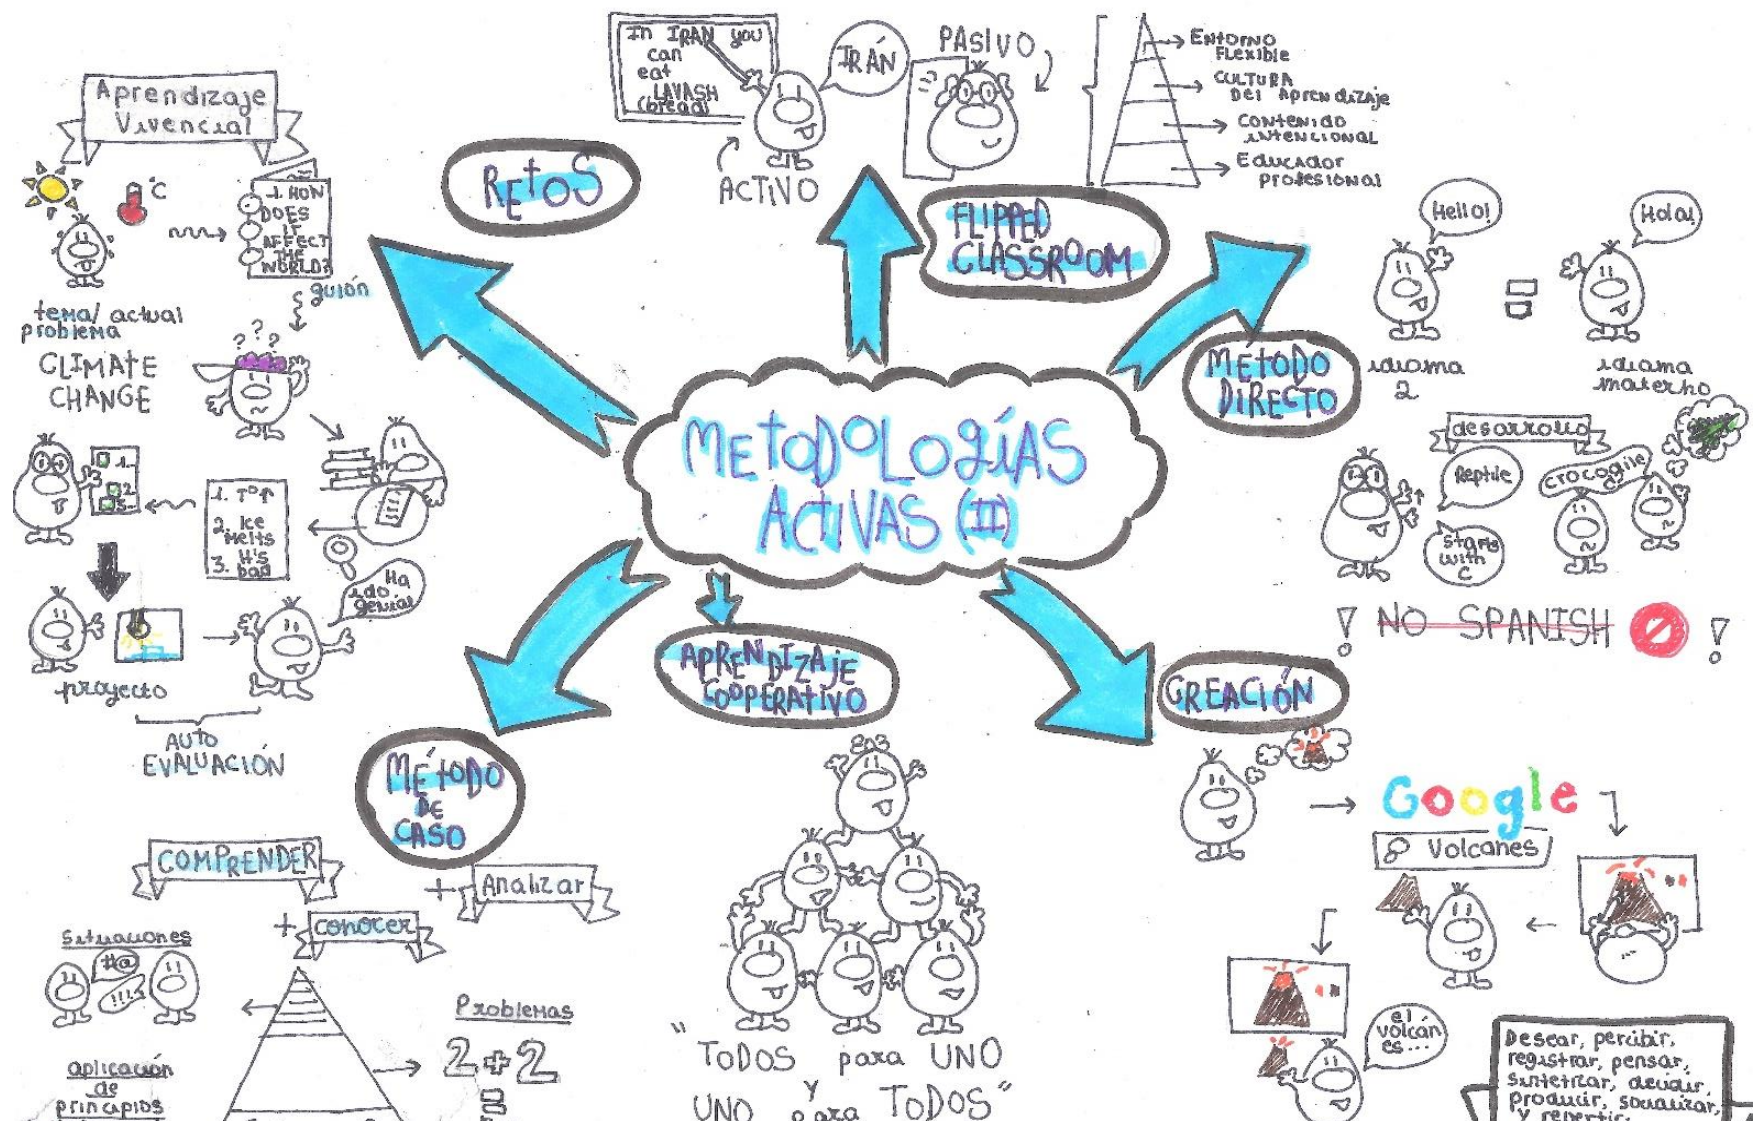 METODOLOGÍAS
ACTIVAS (II)
RETOS
Aprendizaje
Vivencial
°C
1. HOW
DOES
IT
AFFECT
THE
WORLD?
guión
tema/actual
problema
CLIMATE
CHANGE
???
1.
2.
3.
1. Tº↑
2. Ice
Melts
3. It's
bad
Ha
ido
genial
proyecto
AUTO
EVALUACIÓN
FLIPPED
CLASSROOM
In IRAN you
can
eat
LAVASH
(bread)
IRÁN
ACTIVO
PASIVO
ENTORNO
Flexible
CULTURA
Del Aprendizaje
Contenido
intencional
Educador
profesional
MÉTODO
DIRECTO
Hello!
Hola!
=
idioma
2
idioma
materno
desarrollo
Reptile
Starts
with
C
crocodile
¡ NO SPANISH !
CREACIÓN
Google
Volcanes
el
volcán
es...
Desear, percibir,
registrar, pensar,
sintetizar, decidir,
producir, socializar,
y repetir.
APRENDIZAJE
COOPERATIVO
"TODOS para UNO
y
UNO para TODOS"
MÉTODO
DE
CASO
COMPRENDER
+ conocer
+ Analizar
Situaciones
#@
!!!!
aplicación
de
principios
Problemas
2+2
=